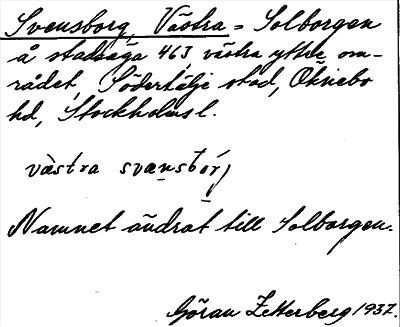 Svensborg, Västra = Solborgen
å stadsäga 463, västra yttre om-
rådet, Södertälje stad, Öknebo
hd, Stockholms l.
västra svansbórj
Namnet ändrat till Solborgen.
Göran Zetterberg 1937.